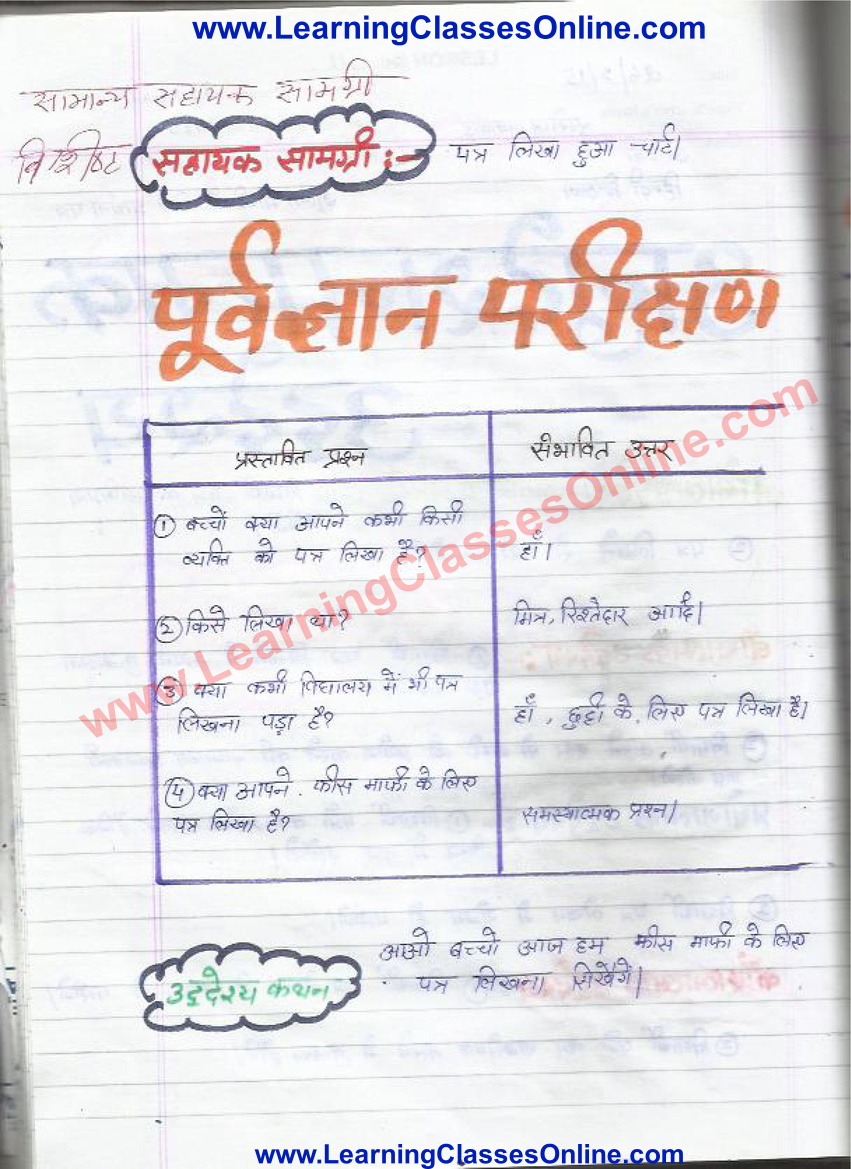 www.LearningClassesOnline.com
सामान्य सहायक सामग्री
विशिष्ट सहायक सामग्री :- पत्र लिखा हुआ चार्ट।
पूर्वज्ञान परीक्षण
प्रस्तावित प्रश्न
संभावित उत्तर
① बच्चों क्या आपने कभी किसी
व्यक्ति को पत्र लिखा है?
हाँ।
② किसे लिखा था?
मित्र, रिश्तेदार आदि।
③ क्या कभी विद्यालय में भी पत्र
लिखना पड़ा है?
हाँ, छुट्टी के लिए पत्र लिखा है।
④ क्या आपने फीस माफी के लिए
पत्र लिखा है?
समस्यात्मक प्रश्न।
www.LearningClassesOnline.com
उद्देश्य कथन
आओ बच्चो आज हम फीस माफी के लिए
पत्र लिखना सिखेंगे।
www.LearningClassesOnline.com